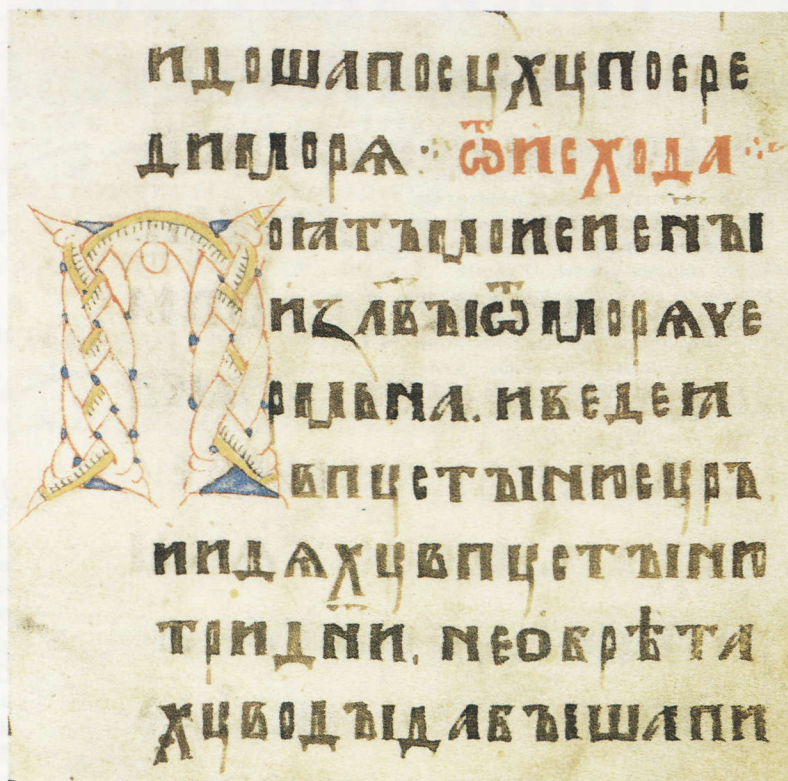 идошапосꙋхꙋпосре
диморѧ ·:· ѿисхода ·:·
Поꙗтъмоисисн҃ꙑ
изл҃вꙑѿморѧче
рмьна. иведеꙗ
впꙋстꙑнюсꙋръ
иидѧхꙋвпꙋстꙑню
тридн҃и. необрѣта
хꙋводꙑдабꙑшапи